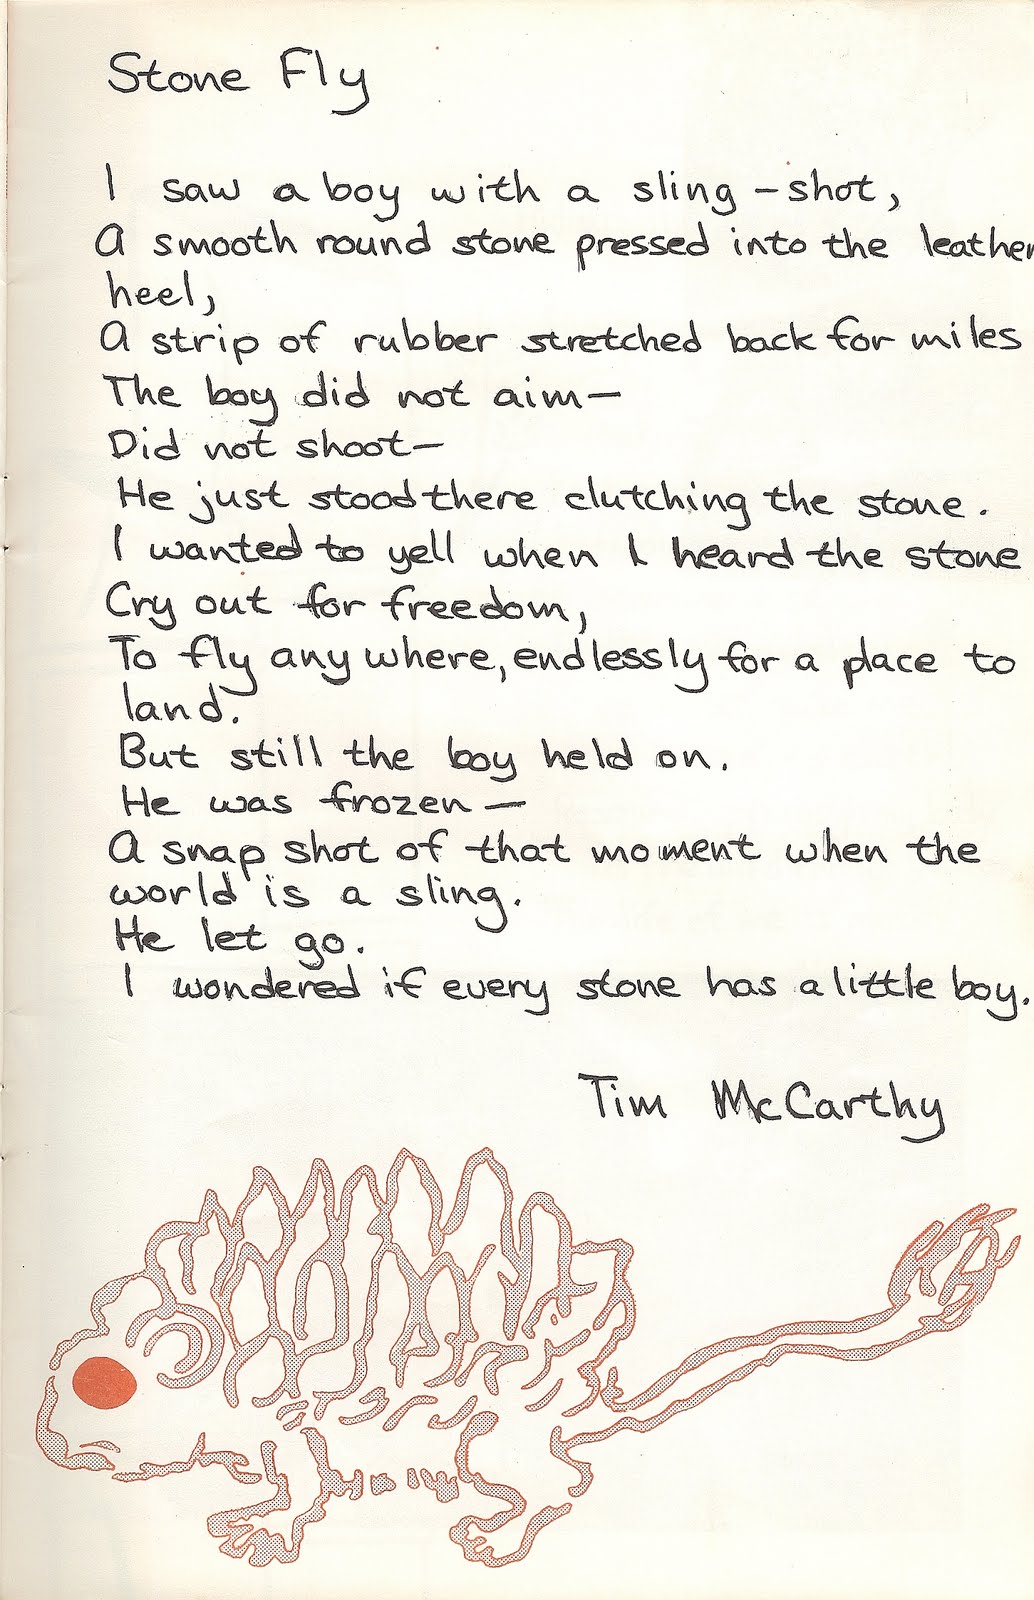 Stone Fly
I saw a boy with a sling-shot,
A smooth round stone pressed into the leather
heel,
A strip of rubber stretched back for miles
The boy did not aim—
Did not shoot—
He just stood there clutching the stone.
I wanted to yell when I heard the stone
Cry out for freedom,
To fly any where, endlessly for a place to
land.
But still the boy held on.
He was frozen—
A snap shot of that moment when the
world is a sling.
He let go.
I wondered if every stone has a little boy.
Tim McCarthy